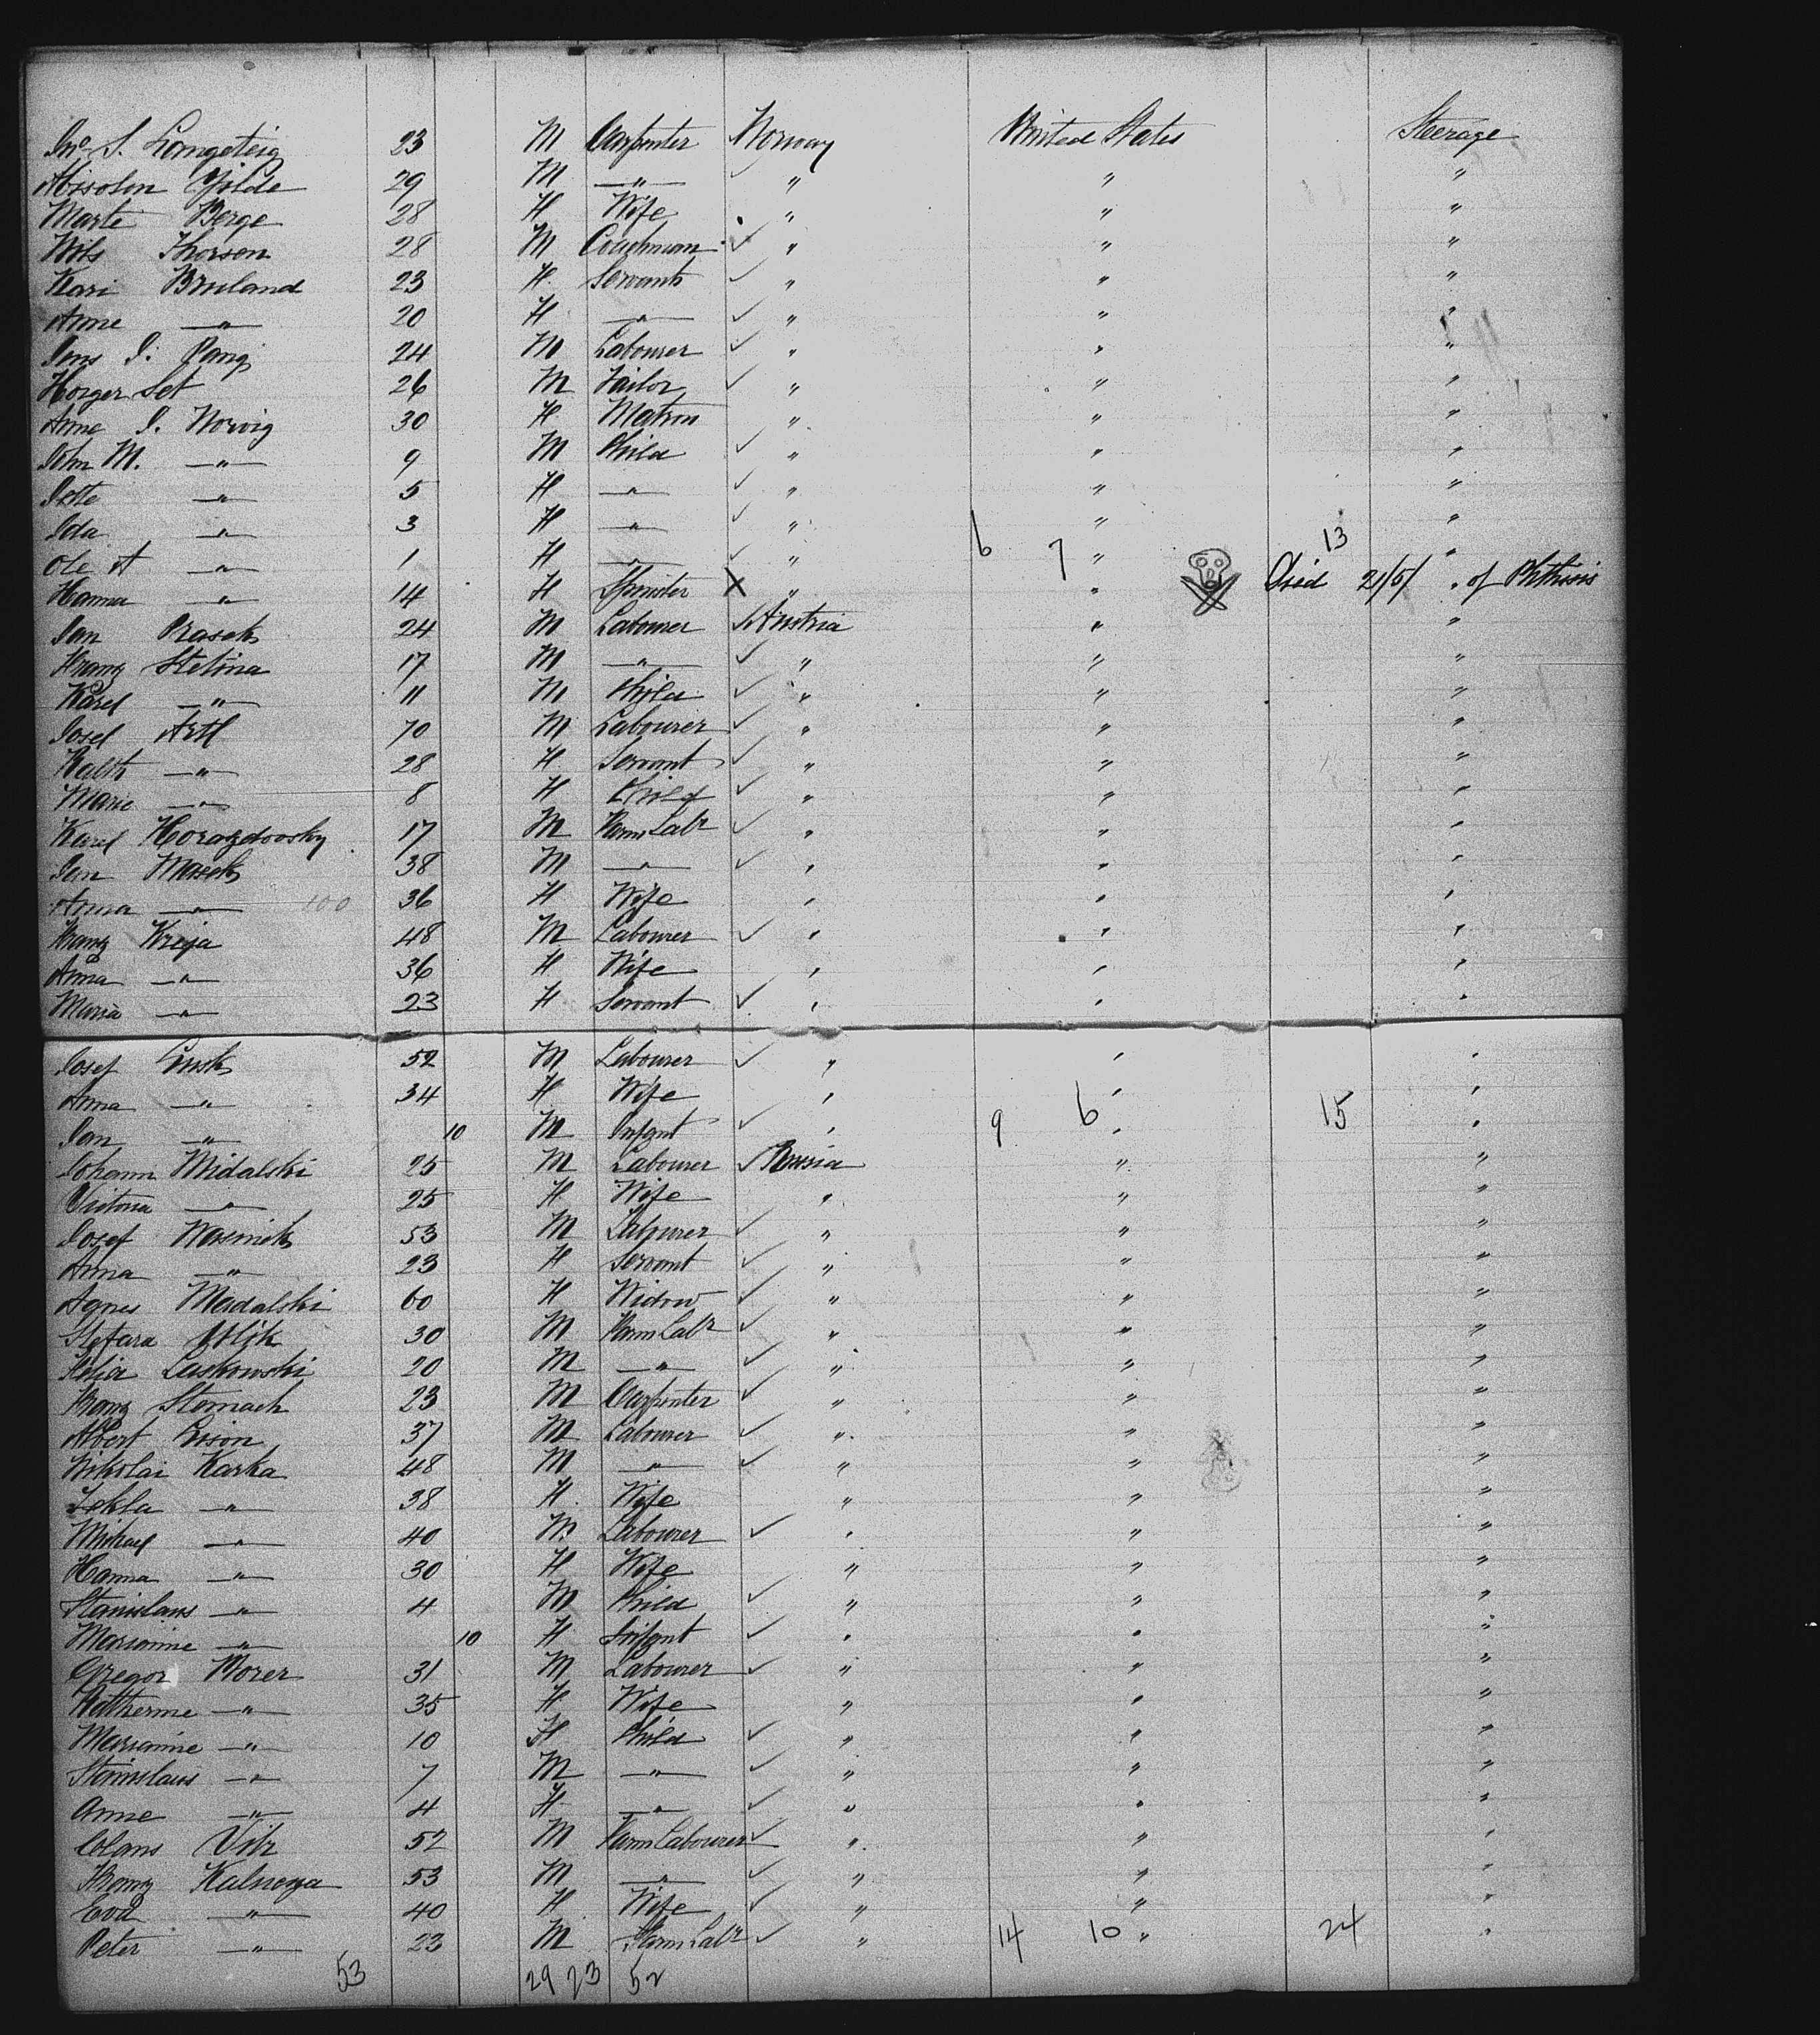 Ine S. Langeteig 23 M Carpenter Norway United States Steerage
Absolon Gjilde 29 M —"— " " "
Marte Berge 28 F Wife " " "
Nils Thorsen 28 M Coachman " " "
Kari Bruland 23 F Servant " " "
Anne —"— 20 F —"— " " "
Jens J. 24 M Labourer " " "
Horger Set 26 M Tailor " " "
Anne J. Norvig 30 F Matron " " "
John M. —"— 9 M Child " " "
—"— 5 F —"— " " "
Ida —"— 3 F —"— " " "
Ole A —"— 1 F —"— " 6 7 " 13 "
Hanna —"— 14 F Spinster X " " Died 21/5/ " of Phthisis
Jan Prasek 24 M Labourer Austria " "
Franz Stetina 17 M —"— " " "
Karel —"— 11 M Child " " "
Josef Artl 70 M Labourer " " "
Kath —"— 28 F Servant " " "
Marie —"— 8 F Child " " "
Karel Horazdovsky 17 M Farm Labr " " "
Jan Masek 38 M —"— " " "
Anna —"— 100 36 F Wife " " "
Franz Kreja 48 M Labourer " " "
Anna —"— 36 F Wife " " "
Maria —"— 23 F Servant " " "
Josef Lusk 52 M Labourer " " "
Anna —"— 34 F Wife " " "
Jan —"— 10 M Infant " 9 6 " 15 "
Johann Midalski 25 M Labourer Russia " "
Victoria —"— 25 F Wife " " "
Josef Wasniek 53 M Labourer " " "
Anna —"— 23 F Servant " " "
Agnes Madalski 60 F Widow " " "
30 M Farm Labr " " "
Luskowski 20 M —"— " " "
Franz Stomach 23 M Carpenter " " "
Albert Lison 37 M Labourer " " "
Nikolai Karka 48 M —"— " " "
Tekla —"— 38 F Wife " " "
Michael —"— 40 M Labourer " " "
Hanna —"— 30 F Wife " " "
Stanislaus —"— 4 M Child " " "
Marianne —"— 10 F Infant " " "
Gregor Morer 31 M Labourer " " "
Katherine —"— 35 F Wife " " "
Marianne —"— 10 F Child " " "
Stanislaus —"— 7 M —"— " " "
Anne —"— 4 F —"— " " "
Clans Vitr 52 M Farm Labourer " " "
Franz Kalneza 53 M —"— " " "
Eva —"— 40 F Wife " " "
Peter —"— 23 M Farm Labr " 14 10 " 24 "
53 29 23 52